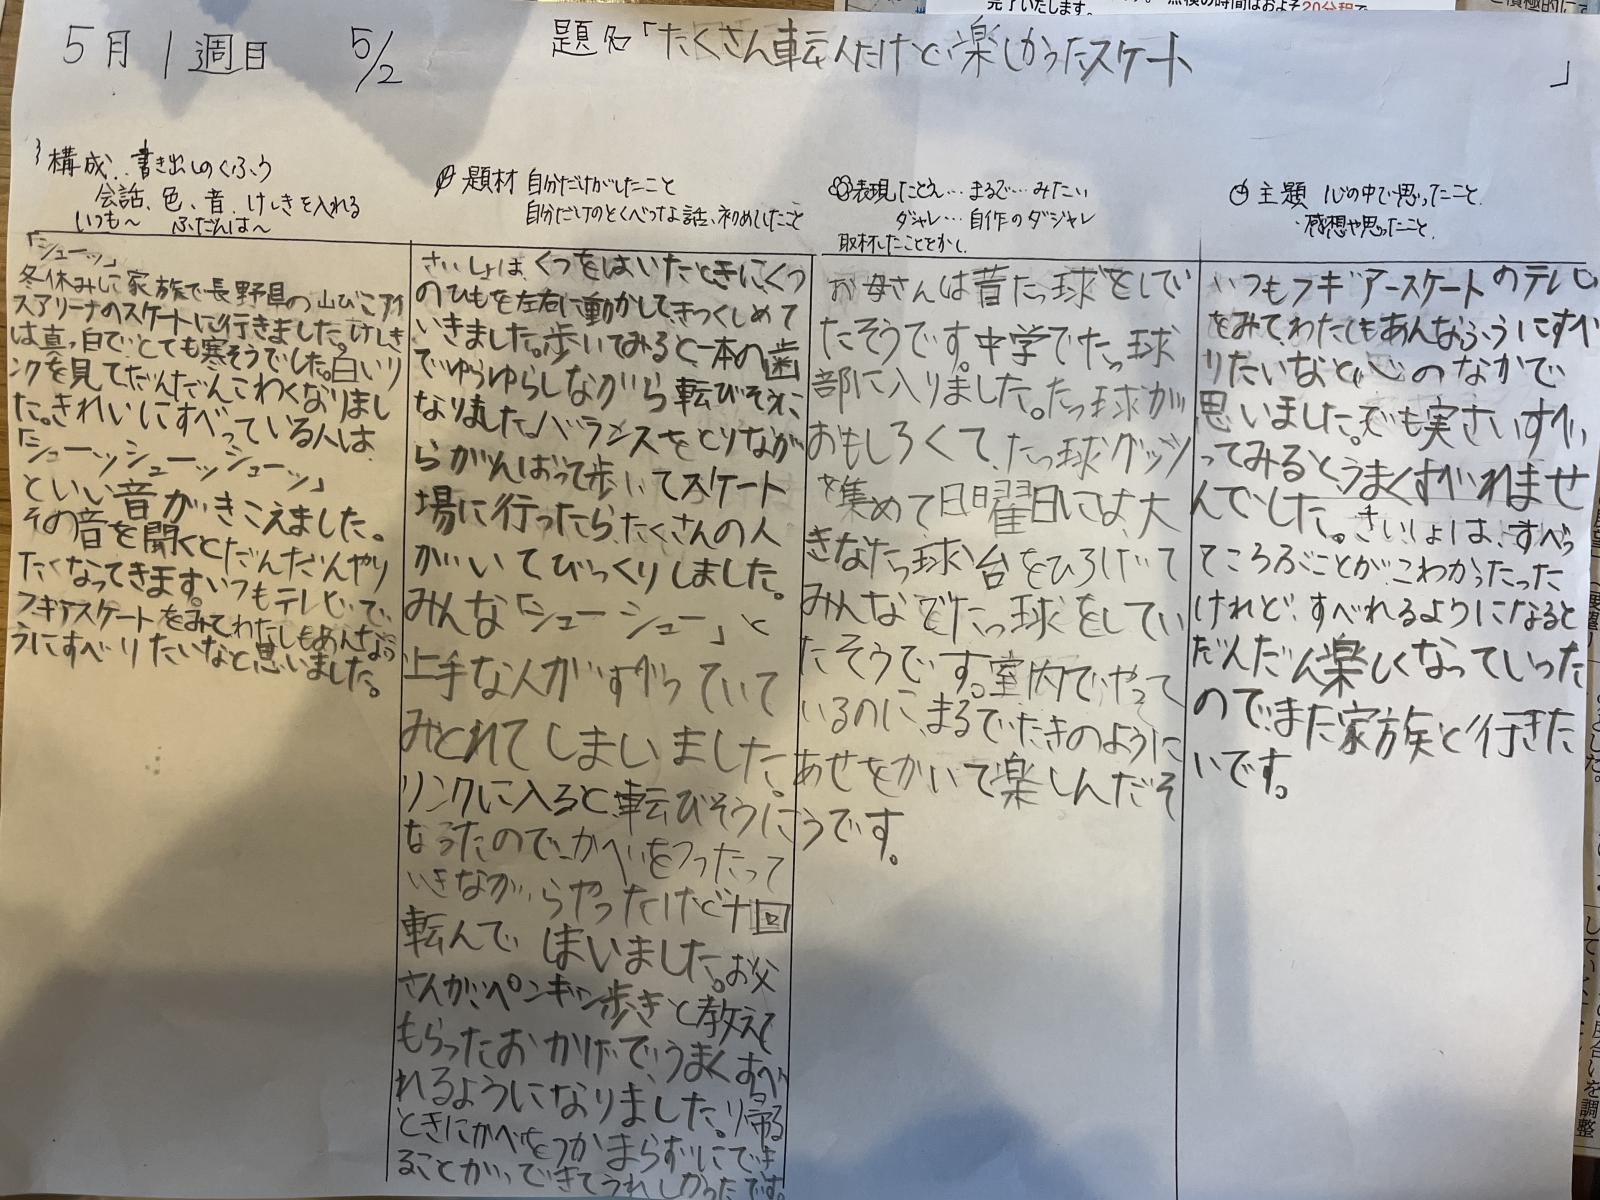 完了いたします。
点検の時間はおよそ20分程で
と積極的に
5月1週目 5/2 題名「たくさん転んだけど楽しかったスケート」
構成‥書き出しのくふう
会話、色、音、けしきを入れる
いつも～ ふだんは～
題材 自分だけがしたこと
自分だけのとくべつな話、初めしたこと
表現 たとえ…まるで…みたい
ダジャレ…自作のダジャレ
取材したことをかく。
主題 心の中で思ったこと。
・感想や思ったこと。
「シューッ」
冬休みに家族で長野県の山びこアイ
スアリーナのスケートに行きました。けしき
は真っ白で、とても寒そうでした。白いリ
ンクを見てだんだんこわくなりまし
た。きれいにすべっている人は、
「シューッシューッシューッ」
といい音がきこえました。
その音を聞くとだんだんやり
たくなってきます。いつもテレビで、
フギアスケートをみてわたしもあんなふ
うにすべりたいなと思いました。
さいしょは、くつをはいたときに、くつ
のひもを左右に動かしてきつくしめて
いきました。歩いてみると一本の歯
でゆらゆらしながら転びそうに
なりました。バランスをとりなが
らがんばって歩いてスケート
場に行ったら、たくさんの人
がいてびっくりしました。
みんな「シューシュー」と
上手な人がすべっていて
みとれてしまいました。
リンクに入ると、転びそうに
なったので、かべをつたって
いきながらやったけど十回
転んでしまいました。お父
さんが、ペンギン歩きと教えて
もらったおかげで、うまくすべ
れるようになりました。帰る
ときにかべをつかまらずにでき
ることができてうれしかったです。
お母さんは昔たっ球をしてい
たそうです。中学でたっ球
部に入りました。たっ球が
おもしろくて、たっ球グッツ
を集めて日曜日には、大
きなたっ球台をひろげて
みんなでたっ球をしてい
たそうです。室内でやって
いるのに、まるでたきのように
あせをかいて楽しんだそ
うです。
いつもフギアースケートのテレビ
をみて、わたしもあんなふうにすべ
りたいなと心のなかで
思いました。でも実さいすべ
ってみると、うまくすべれませ
んでした。さいしょは、すべっ
てころぶことがこわかったった
けれど、すべれるようになると
だんだん楽しくなっていった
ので、また家族と行きた
いです。